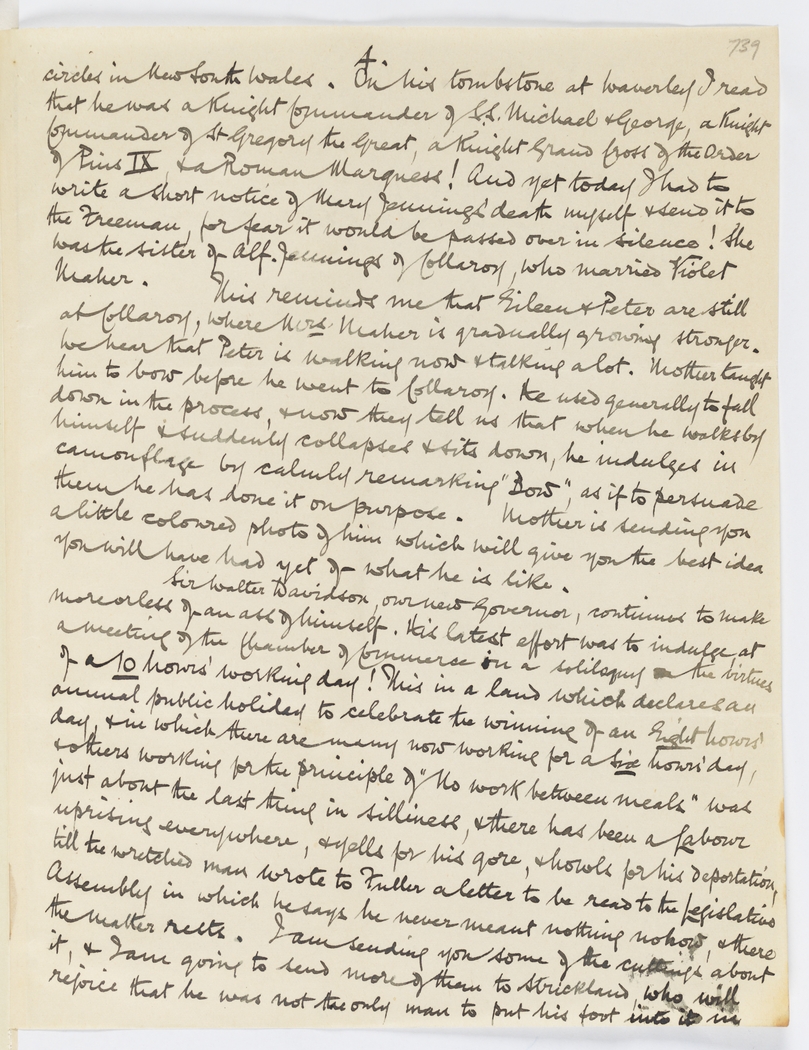 739
4
circles in New South Wales. On his tombstone at Waverley I read
that he was a Knight Commander of S.S. Michael & George, a Knight
Commander of St Gregory the Great, a Knight Grand Cross of the Order
of Pius IX, & a Roman Marquess! And yet today I had to
write a short notice of Mary Jennings' death myself & send it to
the Freeman, for fear it would be passed over in silence! She
was the sister of Alf. Jennings of Collaroy, who married Violet
Maher. This reminds me that Eileen & Peter are still
at Collaroy, where Mrs. Maher is gradually growing stronger.
We hear that Peter is walking now & talking a lot. Mother taught
him to bow before he went to Collaroy. He used generally to fall
down in the process, & now they tell us that when he walks by
himself & suddenly collapses & sits down, he indulges in
camouflage by calmly remarking "Bow", as if to persuade
them he has done it on purpose. Mother is sending you
a little coloured photo of him which will give you the best idea
you will have had yet of what he is like.
Sir Walter Davidson, our new Governor, continues to make
more or less of an ass of himself. His latest effort was to indulge at
a meeting of the Chamber of Commerce in a soliloquy the virtues
of a 10 hours' working day! This in a land which declares an
annual public holiday to celebrate the winning of an Eight hours'
day, & in which there are many now working for a Six hours' day,
& others working for the principle of "No work between meals" was
just about the last thing in silliness, & there has been a labour
uprising everywhere, & yells for his gore, & howls for his deportation,
till the wretched man wrote to Fuller a letter to be read to the Legislative
Assembly in which he says he never meant nothing nohow, & there
the matter rests. I am sending you some of the cuttings about
it, & I am going to send more of them to Strickland, who will
rejoice that he was not the only man to put his foot into it in